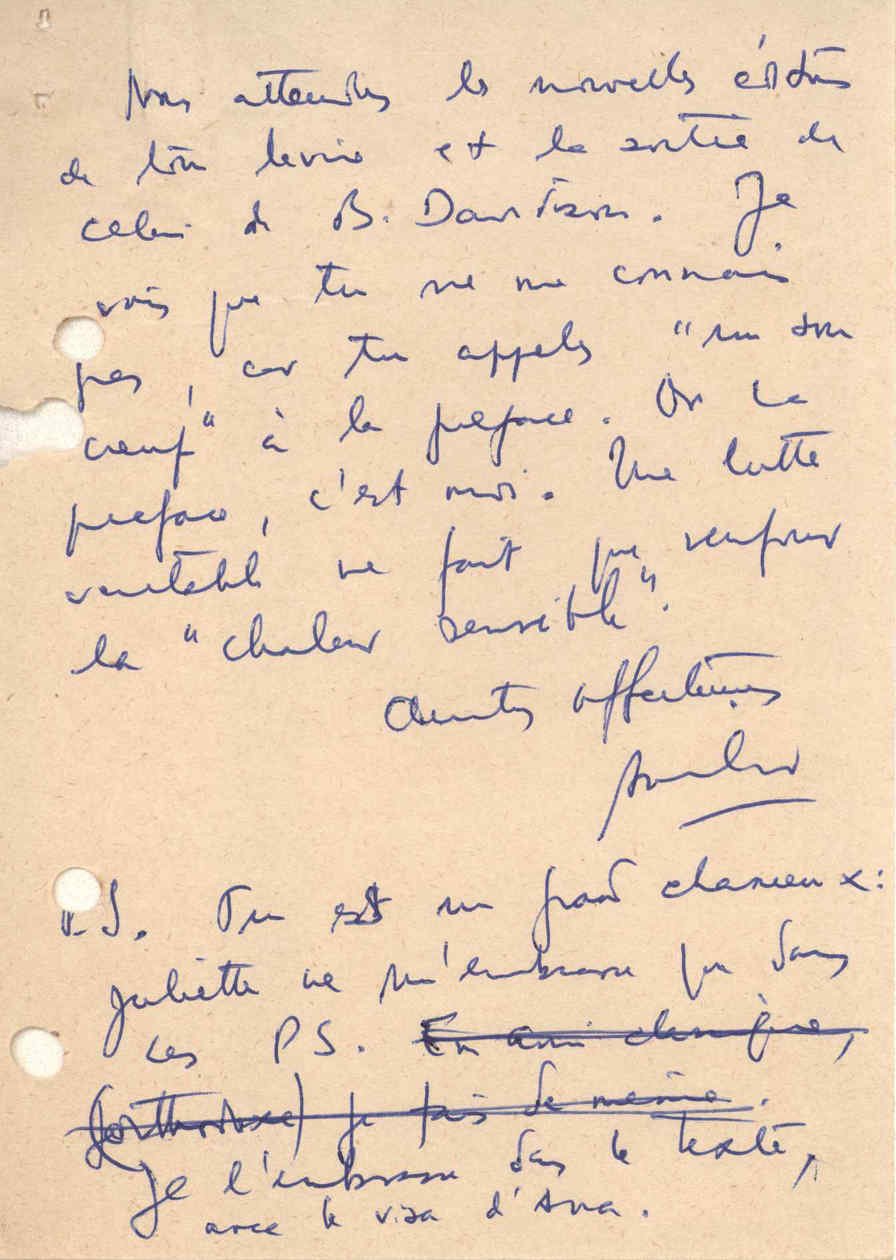 Nous attendons les nouvelles éditions
de ton livre et la sortie de
celui de B. Davidson. Je
vois que tu ne me connais
pas, car tu appelles "un don
creux" à la préface. Or la
préface, c'est moi. Une lutte
veritable ne fait que renforcer
la "chaleur sensible".
Amitiés affectueuses
P.S. Tu est un grand chanceux:
Juliette ne m'embrasse que dans
les PS. En ami classique,
(orthodoxe) je fais de même.
Je l'embrasse dans le texte,
avec le visa d'Ana.